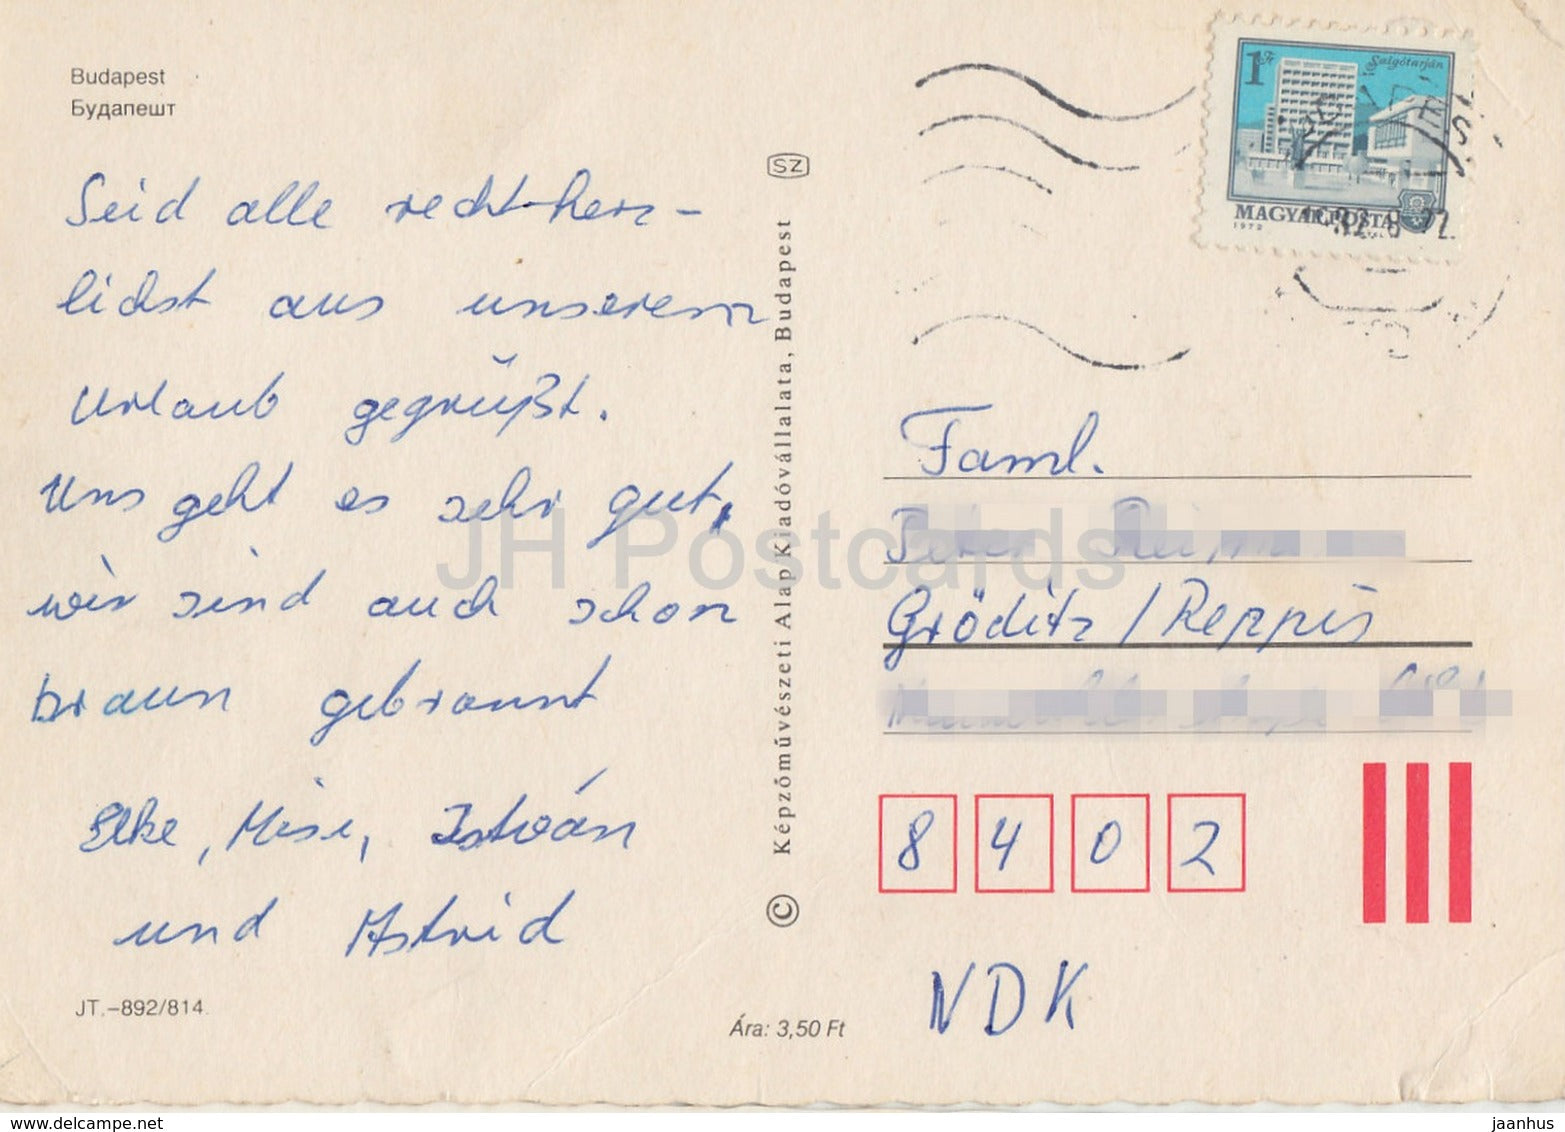 Budapest
Будапешт
Seid alle recht herz-
lichst aus unserem
Urlaub gegrüßt.
Uns geht es sehr gut,
wir sind auch schon
braun gebrannt
Elke, Misi, István
und Astrid
JT.-892/814.
Ára: 3,50 Ft
© Képzőművészeti Alap Kiadóvállalata, Budapest
SZ
1 Ft Salgótarján
MAGYAR POSTA
1972
Faml.
Peter
Gröditz / Reppis
8 4 0 2
NDK
JH Postcards
www.delcampe.net
jaanhus